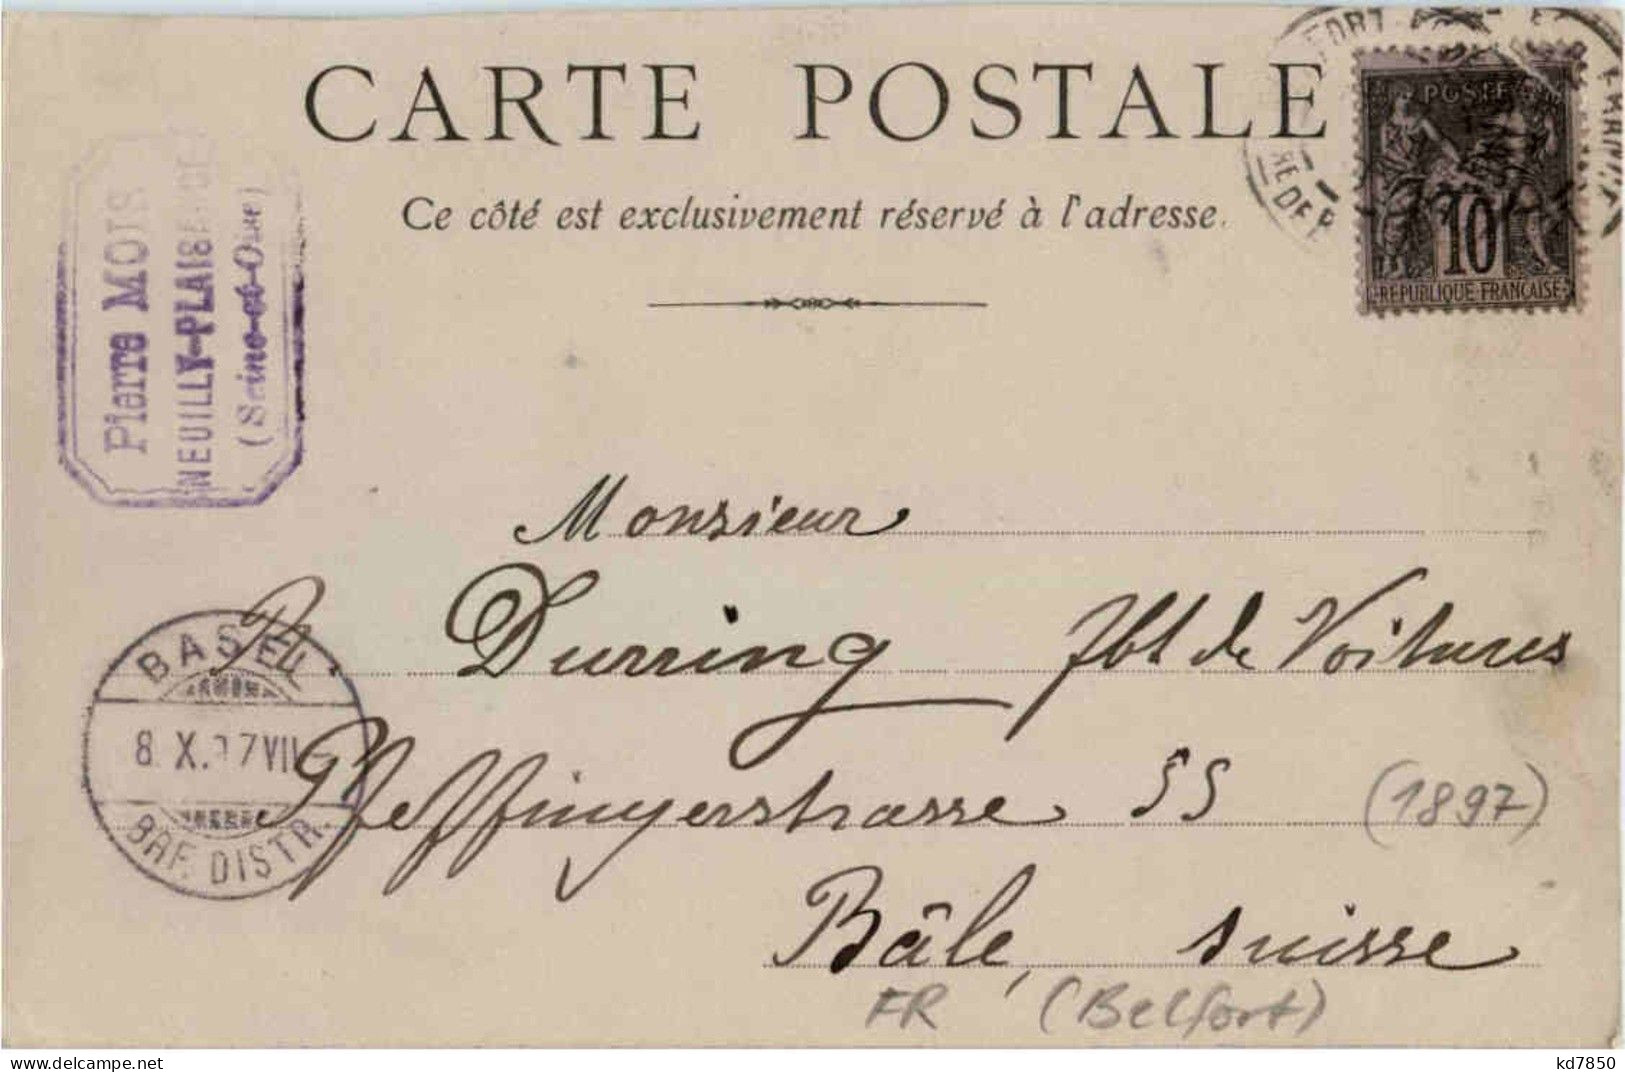 CARTE POSTALE
Ce côté est exclusivement réservé à l'adresse.
POSTES
10
REPUBLIQUE FRANÇAISE
FORT
RE DE B
Pierre MOIS
NEUILLY-PLAISANCE
(Seine-et-Oise)
Monsieur
Durring fbt de Voitures
Pfeffingerstrasse 55
(1897)
Bâle, Suisse
FR (Belfort)
BASEL
8.X.97 VII
BRF. DISTR.
kd7850